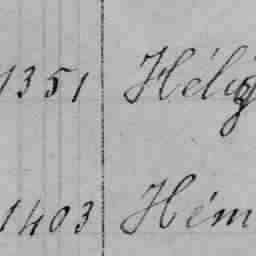 1351 Hélig
1403 Hém